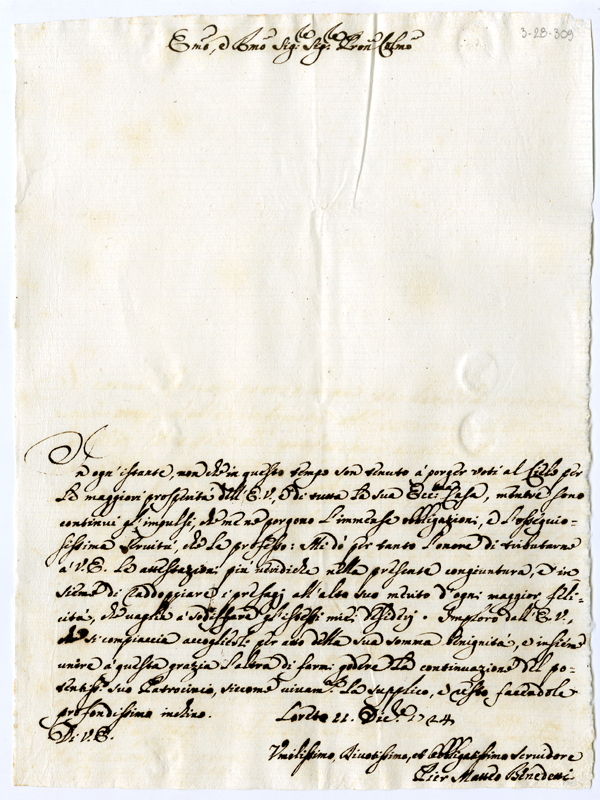 3-28-309
Emo, e Rmo Sig.re Sig.re Pron Colmo
In ogn'istante, non che in questo tempo son tenuto à porger voti al Cielo per
Le maggiori prosperità dell'E.V., e di tutta La sua Ecc.ma Casa, mentre sono
continui gl'impulsi, che me ne porgono L'immense obbligazioni, e L'ossequio-
sissima servitù, che Le professo: Mi dò per tanto L'onore di tributarne
à V.E. Le attestazioni più veridiche nella presente congiuntura, e in-
sieme di raddoppiare i presagj all'alto suo merito d'ogni maggior feli-
cità, che vaglia à sodisfare gl'istessi miei desiderj. Imploro dall'E.V.,
che si compiaccia accoglierli per atto della sua somma benignità, e insieme
unire à questa grazia L'altra di farmi godere La continuazione del po-
tentiss.o suo Patrocinio, siccome vivam.te La supplico, e resto facendole
profondissimo inchino. Loreto 22. Dic.e 1724
Di V.E.
Umilissimo, Divotissimo, et Obbligatissimo Servidore
Pier Matteo Benedetti